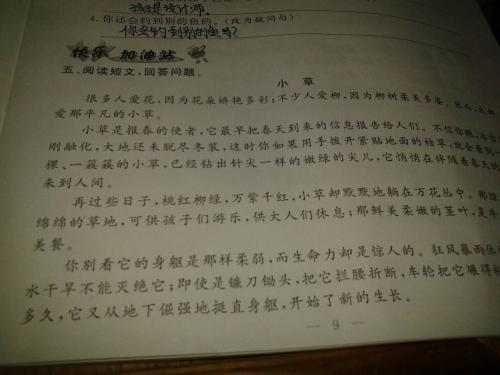 孩是设计师。
4. 你还会钓到别的鱼的。(改为疑问句)
你会钓到别的鱼吗?
快乐 加油站
五、阅读短文,回答问题。
小 草
很多人爱花,因为花朵娇艳多彩;不少人爱柳,因为柳树柔美多姿。然而,我却
爱那平凡的小草。
小草是报春的使者,它最早把春天到来的信息报告给人们。不信你瞧,冰
刚融化,大地还未脱尽冬装,这时你如果用手拨开紧贴地面的枯草,就会看到一
棵、一簇簇的小草,已经钻出针尖一样的嫩绿的尖儿,它悄悄在伴随着春天的
来到人间。
再过些日子,桃红柳绿,万紫千红,小草却默默地躺在万花丛中。那
绵绵的草地,可供孩子们游乐,供大人们休息;那鲜美柔嫩的茎叶,是牛
美餐。
你别看它的身躯是那样柔弱,而生命力却是惊人的。狂风暴雨
水干旱不能灭绝它;即使是镰刀锄头,把它拦腰折断,车轮把它碾得
多久,它又从地下倔强地挺直身躯,开始了新的生长。
— 9 —